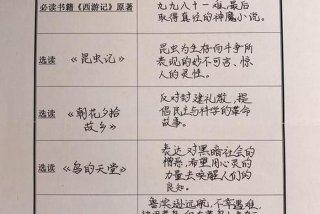 必读书籍《西游记》原著
九九八十一难,最后
取得真经的神魔小说。
选读 《昆虫记》
昆虫为生存而斗争所
表现的妙不可言、惊
人的灵性。
选读 《朝花夕拾
故乡》
反对封建礼教,提
倡民主与科学的革命
故事。
选读 《鸟的天堂》
表达对黑暗社会的
憎恶,希望用心灵的
力量去唤醒人们的
良知。
鲁宾逊远航,不幸遇难,